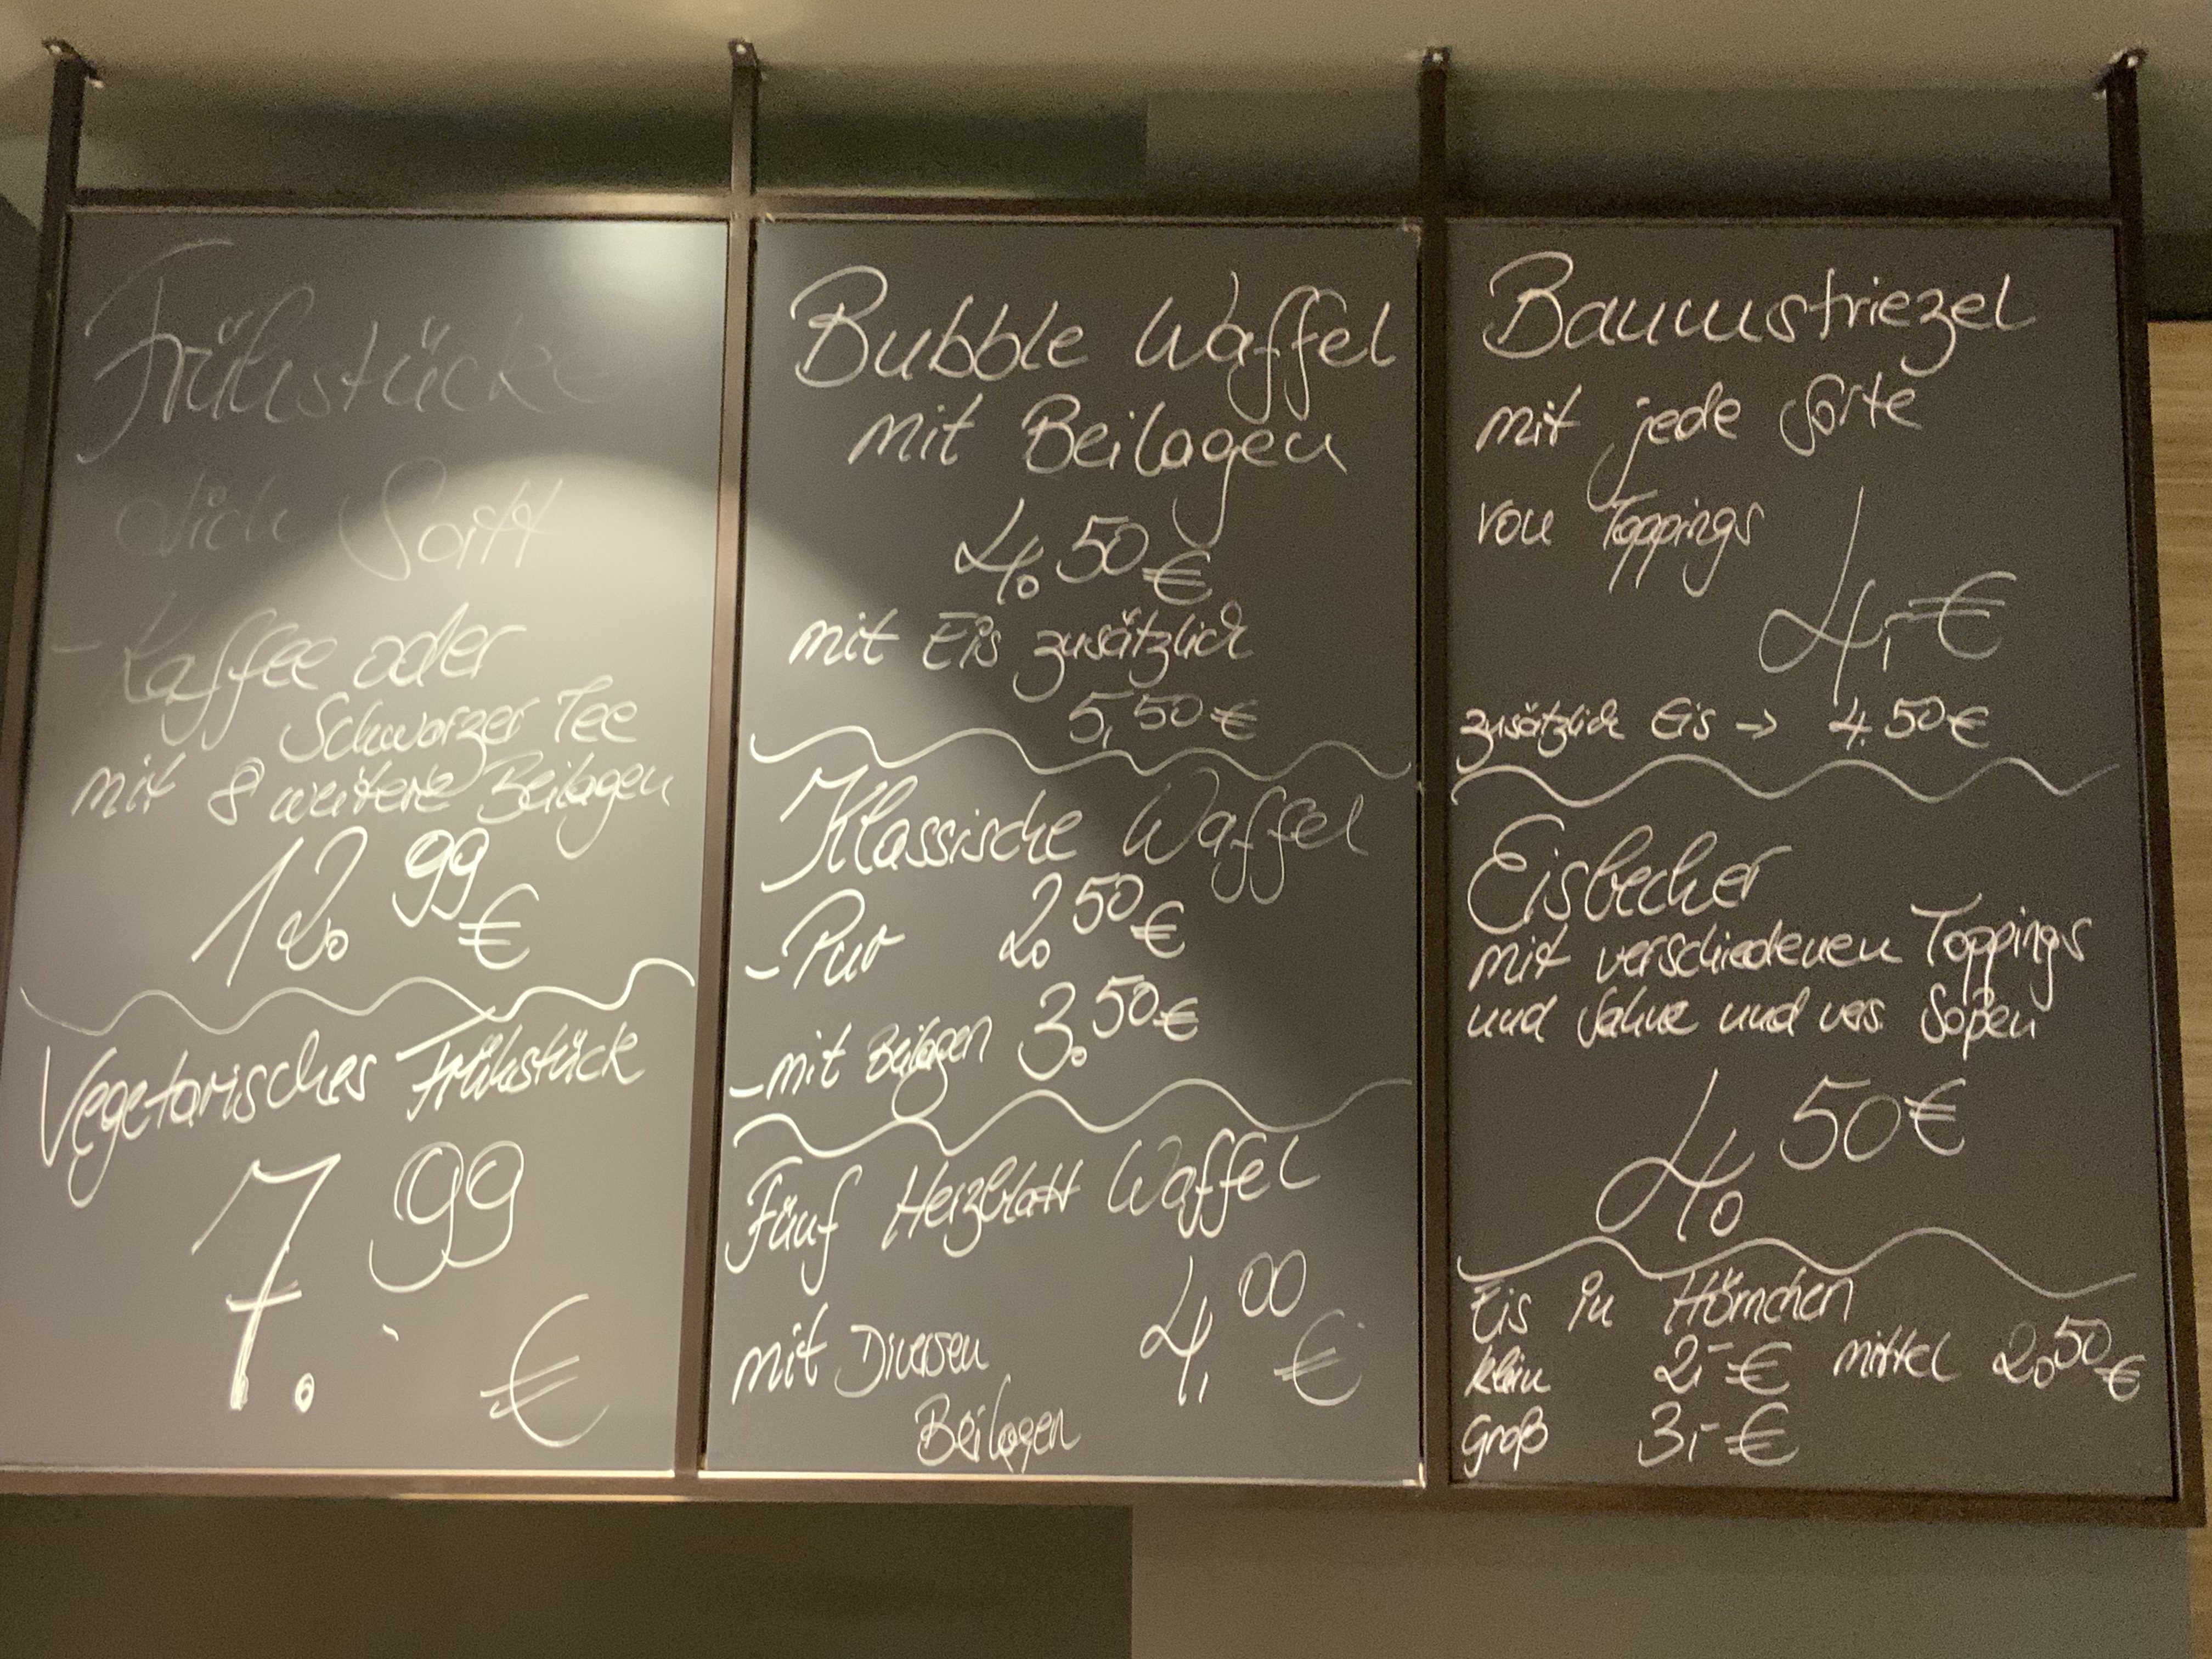 Frühstücke
dich Satt
- Kaffee oder
Schwarzer Tee
mit 8 weitere Beilagen
12.99 €
Vegetarisches Frühstück
7.99 €
Bubble Waffel
mit Beilagen
4.50 €
mit Eis zusätzlich
5,50 €
Klassische Waffel
- Pur 2.50 €
- mit Beilagen 3.50 €
Fünf Herzblatt Waffel
4,00 €
mit Diversen
Beilagen
Baumstriezel
mit jede Sorte
von Toppings
4,- €
zusätzlich Eis → 4.50 €
Eisbecher
mit verschiedenen Toppings
und Sahne und vers. Soßen
4.50 €
Eis in Hörnchen
klein 2,- € mittel 2.50 €
groß 3,- €